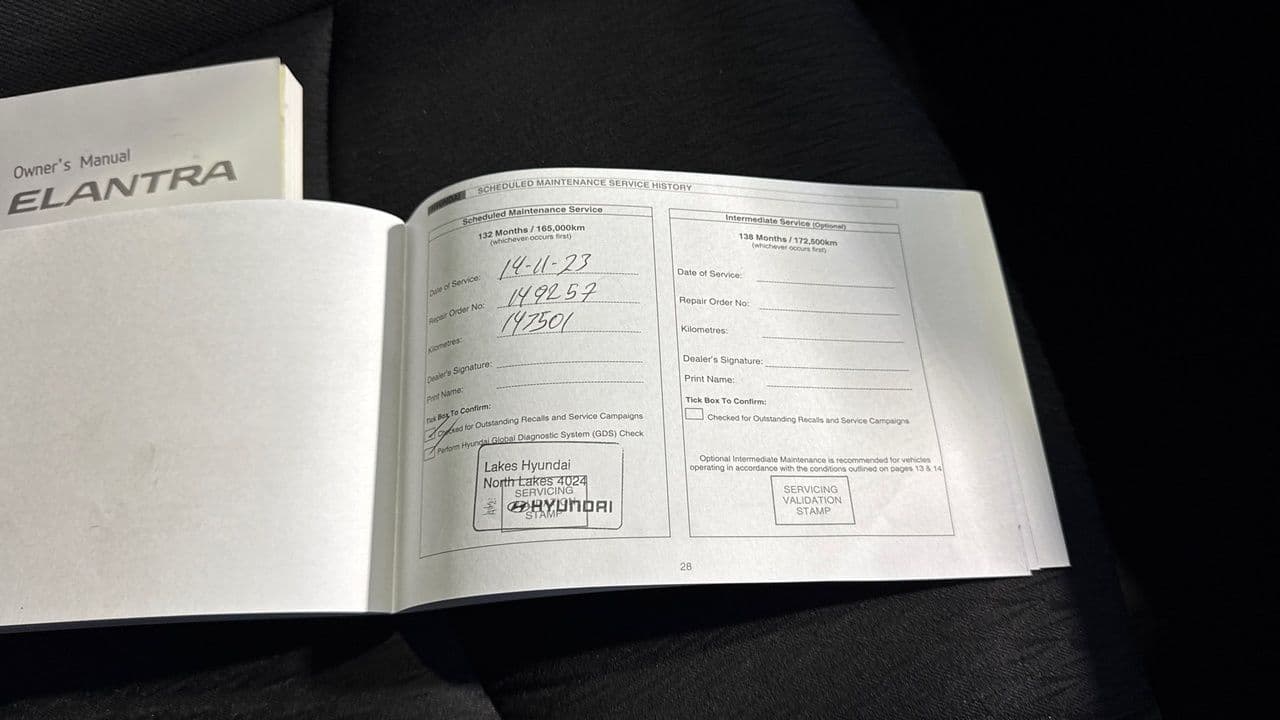 Owner's Manual
ELANTRA
HYUNDAI SCHEDULED MAINTENANCE SERVICE HISTORY
Scheduled Maintenance Service
132 Months / 165,000km
(whichever occurs first)
Date of Service: 14-11-23
Repair Order No: 149257
Kilometres: 147501
Dealer's Signature:
Print Name:
Tick Box To Confirm:
Checked for Outstanding Recalls and Service Campaigns
Perform Hyundai Global Diagnostic System (GDS) Check
Lakes Hyundai
North Lakes 4024
SERVICING
HYUNDAI
STAMP
Intermediate Service (Optional)
138 Months / 172,500km
(whichever occurs first)
Date of Service:
Repair Order No:
Kilometres:
Dealer's Signature:
Print Name:
Tick Box To Confirm:
Checked for Outstanding Recalls and Service Campaigns
Optional Intermediate Maintenance is recommended for vehicles
operating in accordance with the conditions outlined on pages 13 & 14
SERVICING
VALIDATION
STAMP
28